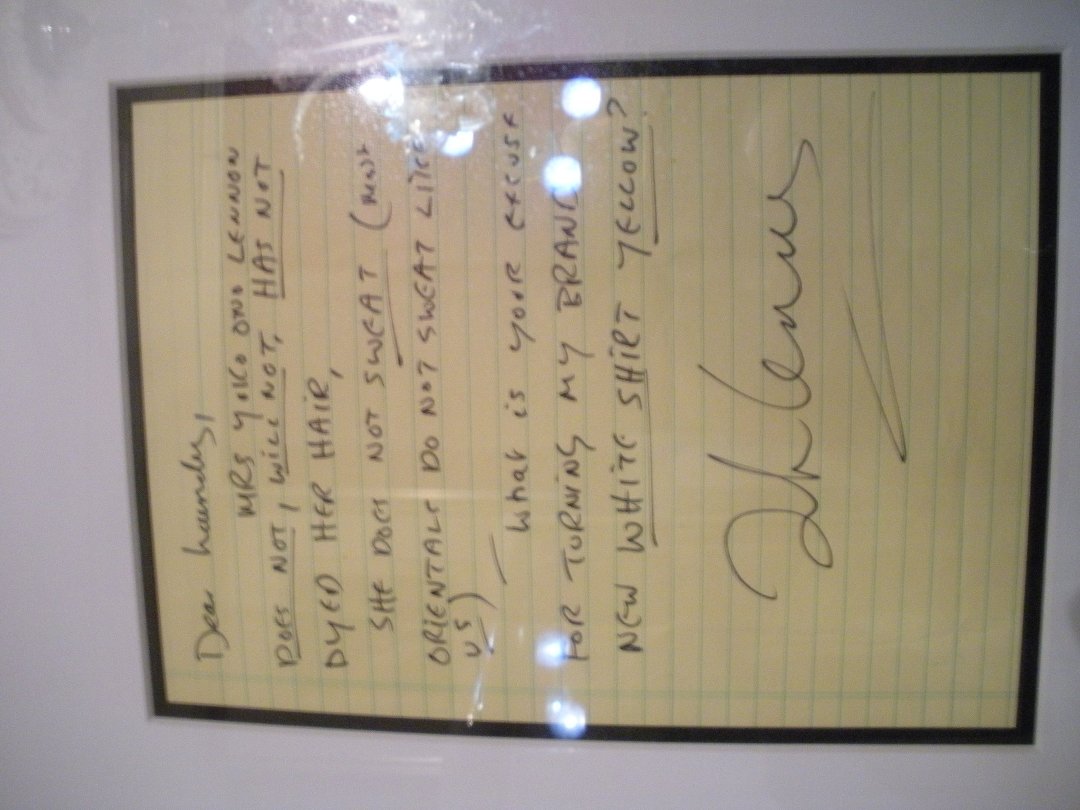 Dear laundry,
MRS YOKO ONO LENNON
DOES NOT, WILL NOT, HAS NOT
DYED HER HAIR,
SHE DOES NOT SWEAT (most
ORIENTALS DO NOT SWEAT LIKE
US)
What is YOUR EXCUSE
FOR TURNING MY BRAND
NEW WHITE SHIRT YELLOW?